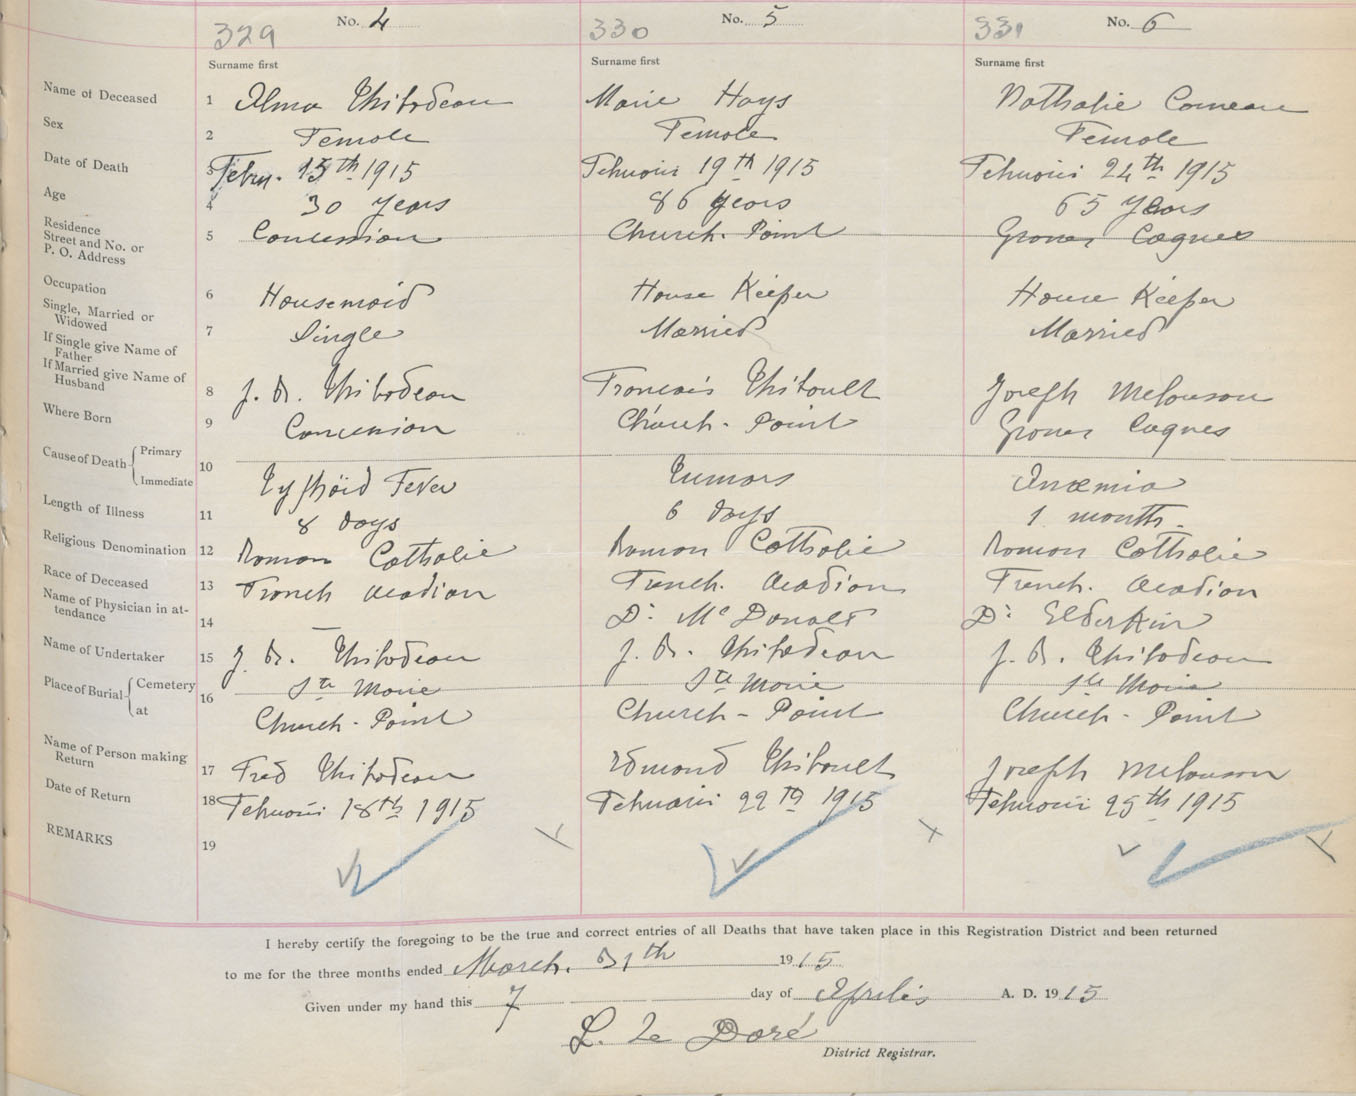 329 No. 4
330 No. 5
331 No. 6
Surname first
Surname first
Surname first
Name of Deceased 1 Alma Thibodeau
Marie Hays
Nathalie Comeau
Sex 2 Female
Female
Female
Date of Death 3 Febru. 15th 1915
19th 1915
24th 1915
Age 4 30 Years
86 Years
65 Years
Residence
Street and No. or
P. O. Address
5 Concession
Church. Point
Grosses Coques
Occupation 6 Housemaid
House Keeper
House Keeper
Single, Married or
Widowed
7 Single
Married
Married
If Single give Name of
Father
If Married give Name of
Husband
8 J. B. Thibodeau
Francois Thibault
Joseph Melanson
Where Born 9 Concession
Church. Point
Grosses Coques
Cause of Death { Primary
Immediate
10 Typhoid Fever
Tumors
Anæmia
Length of Illness 11 8 days
6 days
1 month.
Religious Denomination 12 Roman Catholic
Roman Catholic
Roman Catholic
Race of Deceased 13 French Acadian
French. Acadian
French. Acadian
Name of Physician in at-
tendance
14 —
Dr McDonald
Dr Elderkin
Name of Undertaker 15 J. B. Thibodeau
J. B. Thibodeau
J. B. Thibodeau
Place of Burial { Cemetery
at
16 Ste Marie
Ste Marie
Ste Marie
Church-Point
Church-Point
Church-Point
Name of Person making
Return
17 Fred Thibodeau
Edmond Thibault
Joseph Melanson
Date of Return 18 18th 1915
22th 1915
25th 1915
REMARKS 19
I hereby certify the foregoing to be the true and correct entries of all Deaths that have taken place in this Registration District and been returned
to me for the three months ended March. 31th 1915
Given under my hand this 7 day of A. D. 1915
L. Le Doré
District Registrar.